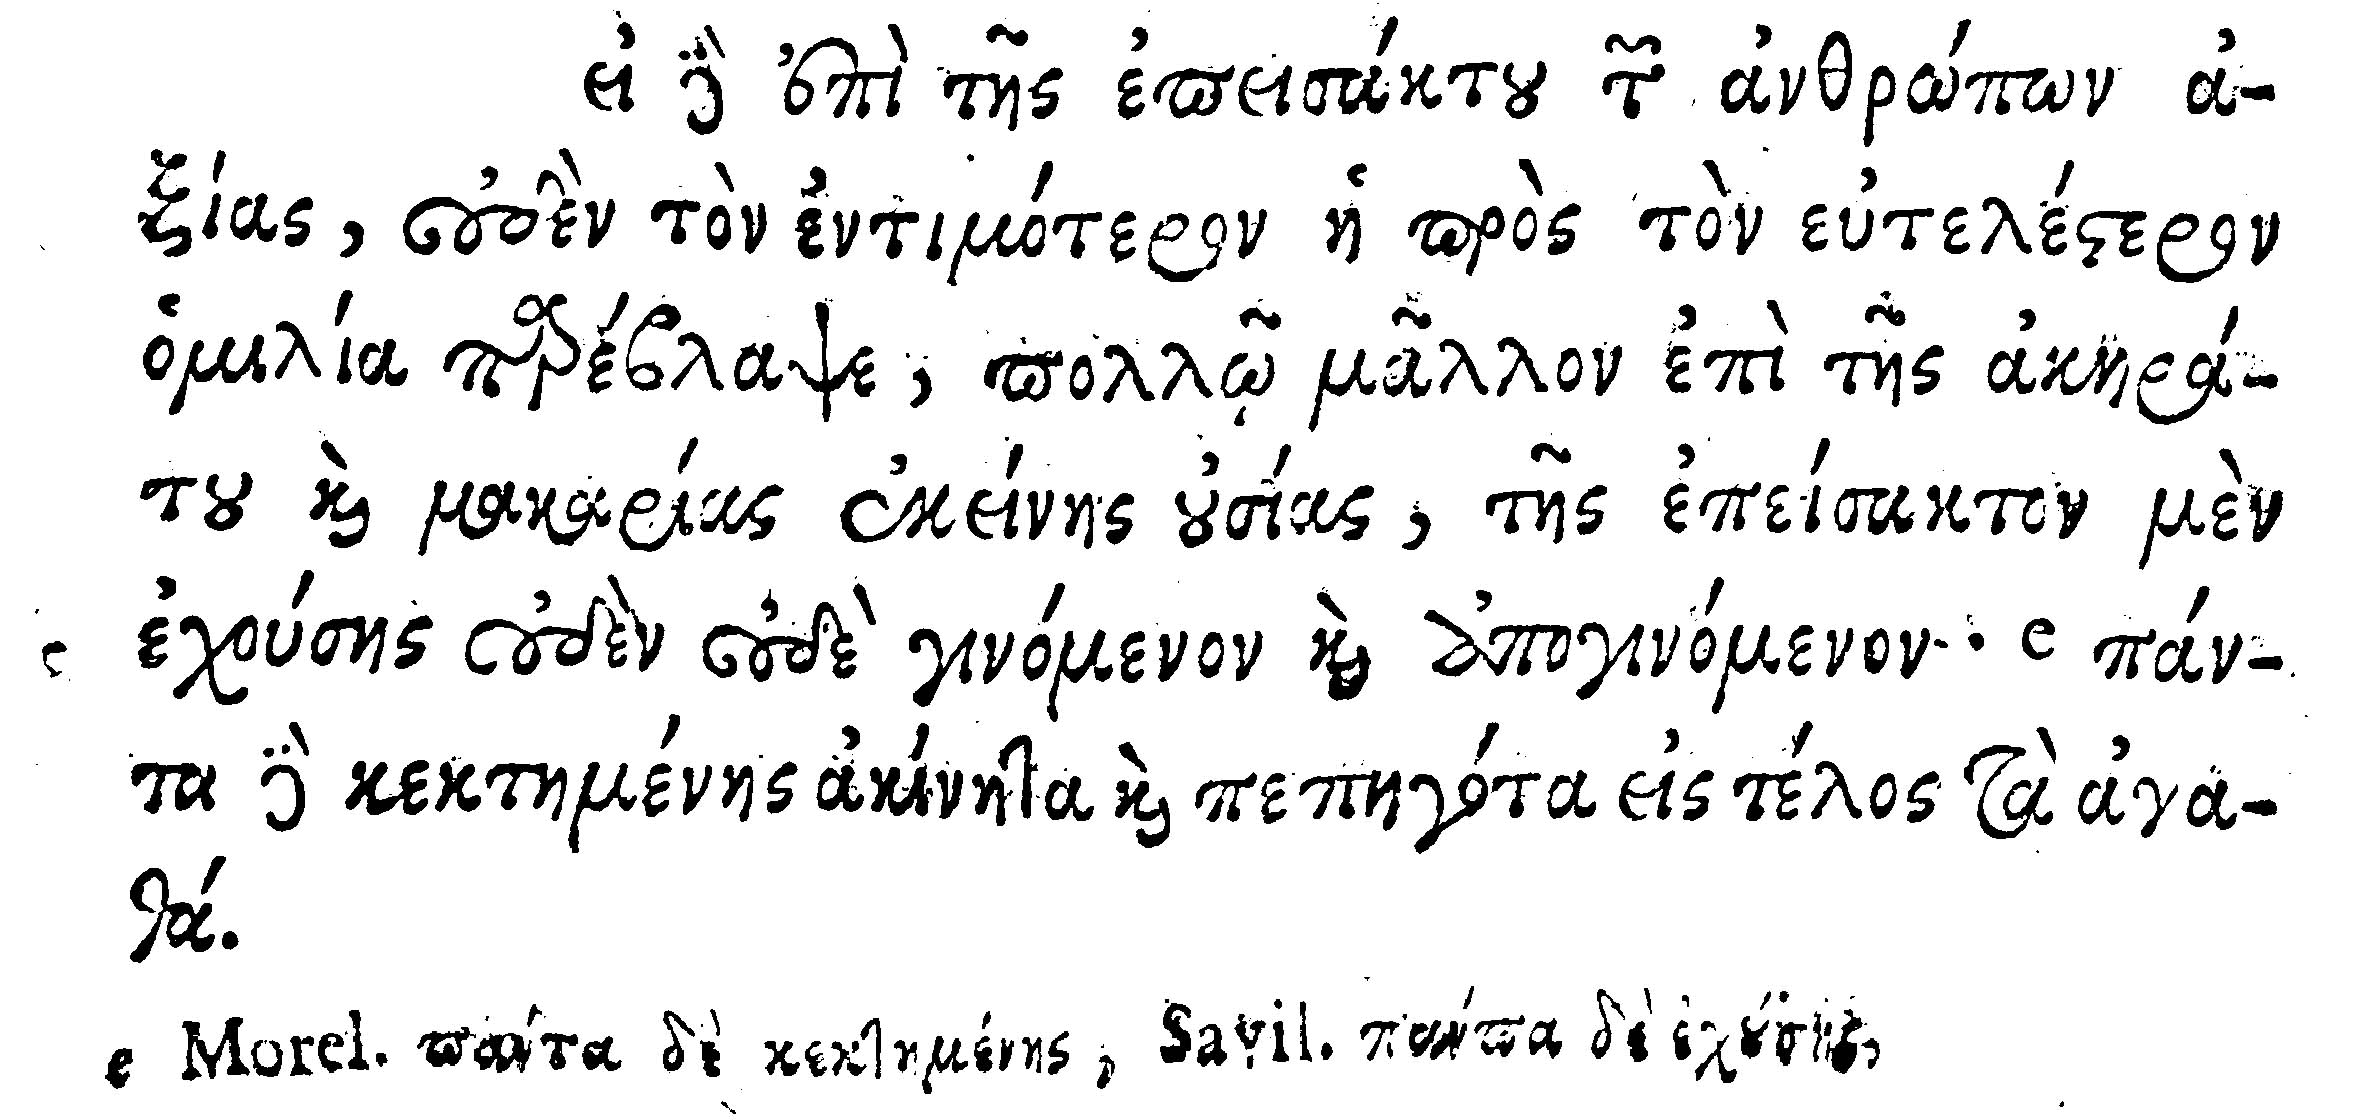 εἰ δὲ ἐπὶ τῆς ἐπεισάκτου τῶν ἀνθρώπων ἀ-
ξίας, οὐδὲν τὸν ἐντιμότερον ἡ πρὸς τὸν εὐτελέστερον
ὁμιλία παρέβλαψε, πολλῷ μᾶλλον ἐπὶ τῆς ἀκηρά-
του καὶ μακαρίας ἐκείνης οὐσίας, τῆς ἐπείσακτον μὲν
ἐχούσης οὐδὲν οὐδὲ γινόμενον καὶ ἀπογινόμενον· e πάν-
τα δὲ κεκτημένης ἀκίνητα καὶ πεπηγότα εἰς τέλος τὰ ἀγα-
θά.
e Morel. πάντα δὲ κεκτημένης, Savil. πάντα δὲ ἐχούσης,